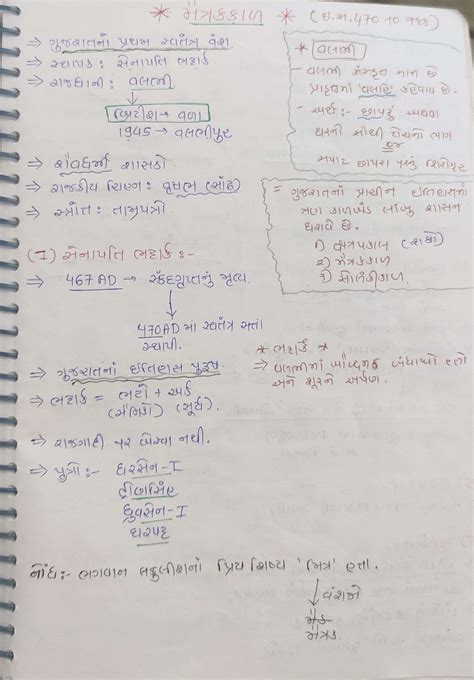 * મૈત્રકકાળ * (ઇ.સ. 470 to 788)
⇒ ગુજરાતનાં પ્રથમ સ્વતંત્ર વંશ
⇒ સ્થાપક : સેનાપતિ ભટ્ટાર્ક
⇒ રાજધાની : વલભી
બ્રિટીશ → વળા
1945 → વલભીપુર
⇒ શૈવધર્મી શાસકો
⇒ રાજકીય ચિહ્ન : વૃષભ (સાંઢ)
⇒ સ્ત્રોત : તામ્રપત્રો
* વલભી
- વલભી સંસ્કૃત નામ છે
પ્રાકૃતમાં 'વલહિ' કહેવાય છે.
- અર્થ :- છાપરું અથવા
ઘરની સૌથી ઉંચનો ભાગ
સપાટ છાપરા
= ગુજરાતનાં પ્રાચીન ઇતિહાસમાં
ત્રણ કાળખંડ લાંબુ શાસન
ધરાવે છે.
1) ક્ષત્રપકાળ (શકો)
2) મૈત્રકકાળ
3) સોલંકીકાળ
(1) સેનાપતિ ભટ્ટાર્ક :-
⇒ 467 AD → સ્કંદગુપ્તનું મૃત્યુ
470 AD માં સ્વતંત્ર સત્તા
સ્થાપી.
⇒ ગુજરાતનાં ઇતિહાસ પુરુષ
⇒ ભટ્ટાર્ક = ભટ્ટો + અર્ક
(સૈનિકો) (સૂર્ય)
⇒ રાજગાદી પર બેઠા નથી.
⇒ પુત્રો :- ધરસેન - I
દ્રોણસિંહ
ધ્રુવસેન - I
ધરપટ્ટ
* ભટ્ટાર્ક *
⇒ વલભીમાં બંધાવ્યો હતો
અને શૂરને અર્પણ.
નોંધ :- ભગવાન લકુલીશનાં પ્રિય શિષ્ય 'મિત્ર' હતા.
વંશજો
મૈત્રક